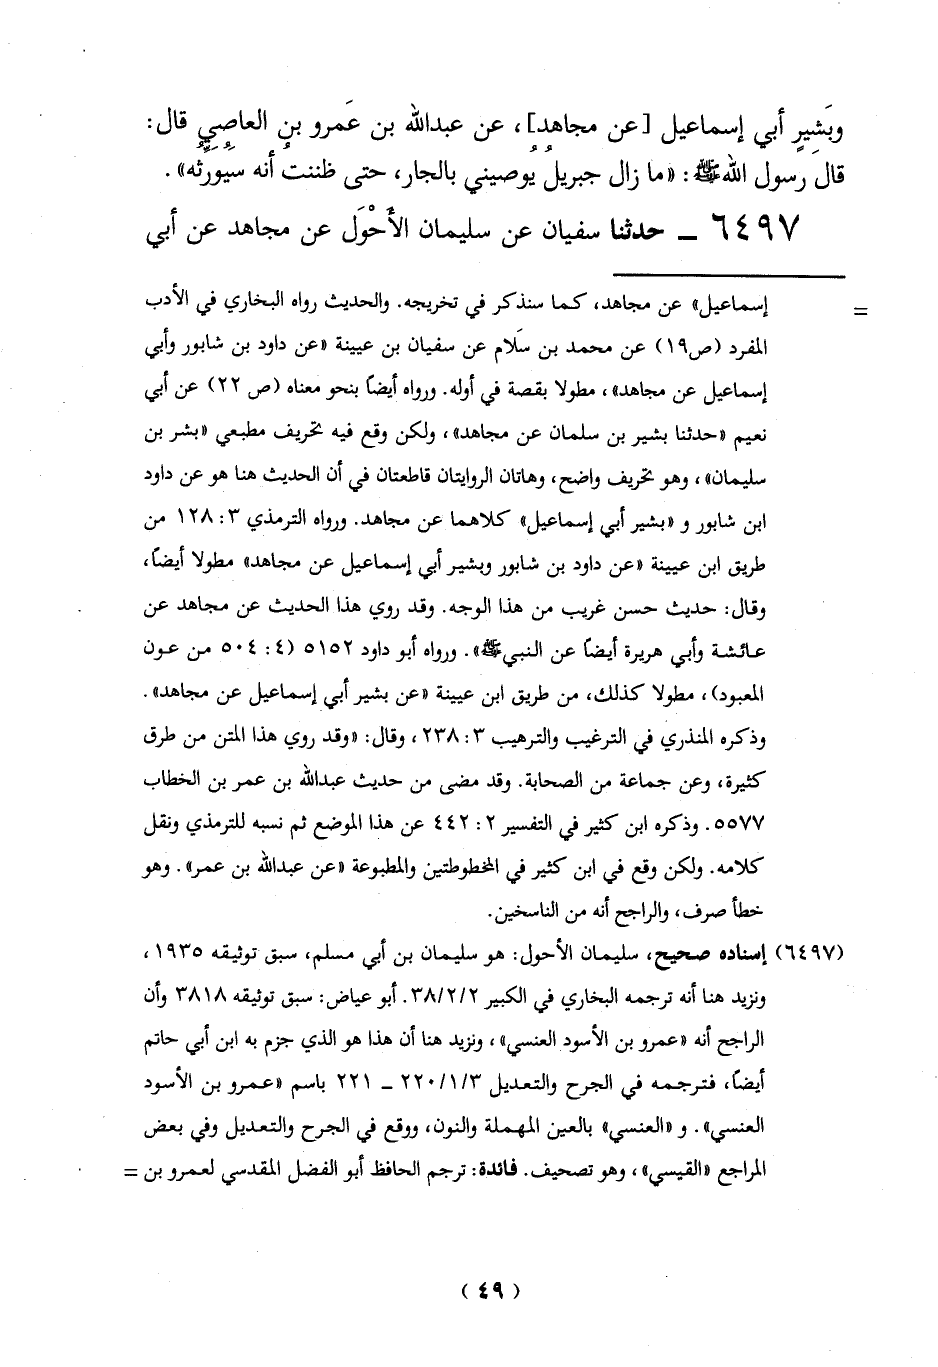 وبَشيرٍ أبي إسماعيل [عن مجاهد]، عن عبدالله بن عَمرو بن العاصي قال:
قال رسول الله ﷺ: «ما زال جبريل يُوصيني بالجار، حتى ظننت أنه سيُورِّثُه».
٦٤٩٧ ــ حدثنا سفيان عن سليمان الأَحْوَل عن مجاهد عن أبي
= إسماعيل» عن مجاهد، كما سنذكر في تخريجه. والحديث رواه البخاري في الأدب
المفرد (ص١٩) عن محمد بن سَلام عن سفيان بن عيينة «عن داود بن شابور وأبي
إسماعيل عن مجاهد»، مطولا بقصة في أوله. ورواه أيضاً بنحو معناه (ص ٢٢) عن أبي
نعيم «حدثنا بشير بن سلمان عن مجاهد»، ولكن وقع فيه تحريف مطبعي «بشر بن
سليمان»، وهو تحريف واضح، وهاتان الروايتان قاطعتان في أن الحديث هنا هو عن داود
ابن شابور و «بشير أبي إسماعيل» كلاهما عن مجاهد. ورواه الترمذي ٣: ١٢٨ من
طريق ابن عيينة «عن داود بن شابور وبشير أبي إسماعيل عن مجاهد» مطولا أيضاً،
وقال: حديث حسن غريب من هذا الوجه. وقد روي هذا الحديث عن مجاهد عن
عائشة وأبي هريرة أيضاً عن النبي ﷺ». ورواه أبو داود ٥١٥٢ (٤: ٥٠٤ من عون
المعبود)، مطولا كذلك، من طريق ابن عيينة «عن بشير أبي إسماعيل عن مجاهد».
وذكره المنذري في الترغيب والترهيب ٣: ٢٣٨، وقال: «وقد روي هذا المتن من طرق
كثيرة، وعن جماعة من الصحابة. وقد مضى من حديث عبدالله بن عمر بن الخطاب
٥٥٧٧. وذكره ابن كثير في التفسير ٢: ٤٤٢ عن هذا الموضع ثم نسبه للترمذي ونقل
كلامه. ولكن وقع في ابن كثير في المخطوطتين والمطبوعة «عن عبدالله بن عمر». وهو
خطأ صرف، والراجح أنه من الناسخين.
(٦٤٩٧) إسناده صحيح، سليمان الأحول: هو سليمان بن أبي مسلم، سبق توثيقه ١٩٣٥،
ونزيد هنا أنه ترجمه البخاري في الكبير ٣٨/٢/٢. أبو عياض: سبق توثيقه ٣٨١٨ وأن
الراجح أنه «عمرو بن الأسود العنسي»، ونزيد هنا أن هذا هو الذي جزم به ابن أبي حاتم
أيضاً، فترجمه في الجرح والتعديل ٢٢٠/١/٣ ــ ٢٢١ باسم «عمرو بن الأسود
العنسي». و «العنسي» بالعين المهملة والنون، ووقع في الجرح والتعديل وفي بعض
المراجع «القيسي»، وهو تصحيف. فائدة: ترجم الحافظ أبو الفضل المقدسي لعمرو بن =
(٤٩)